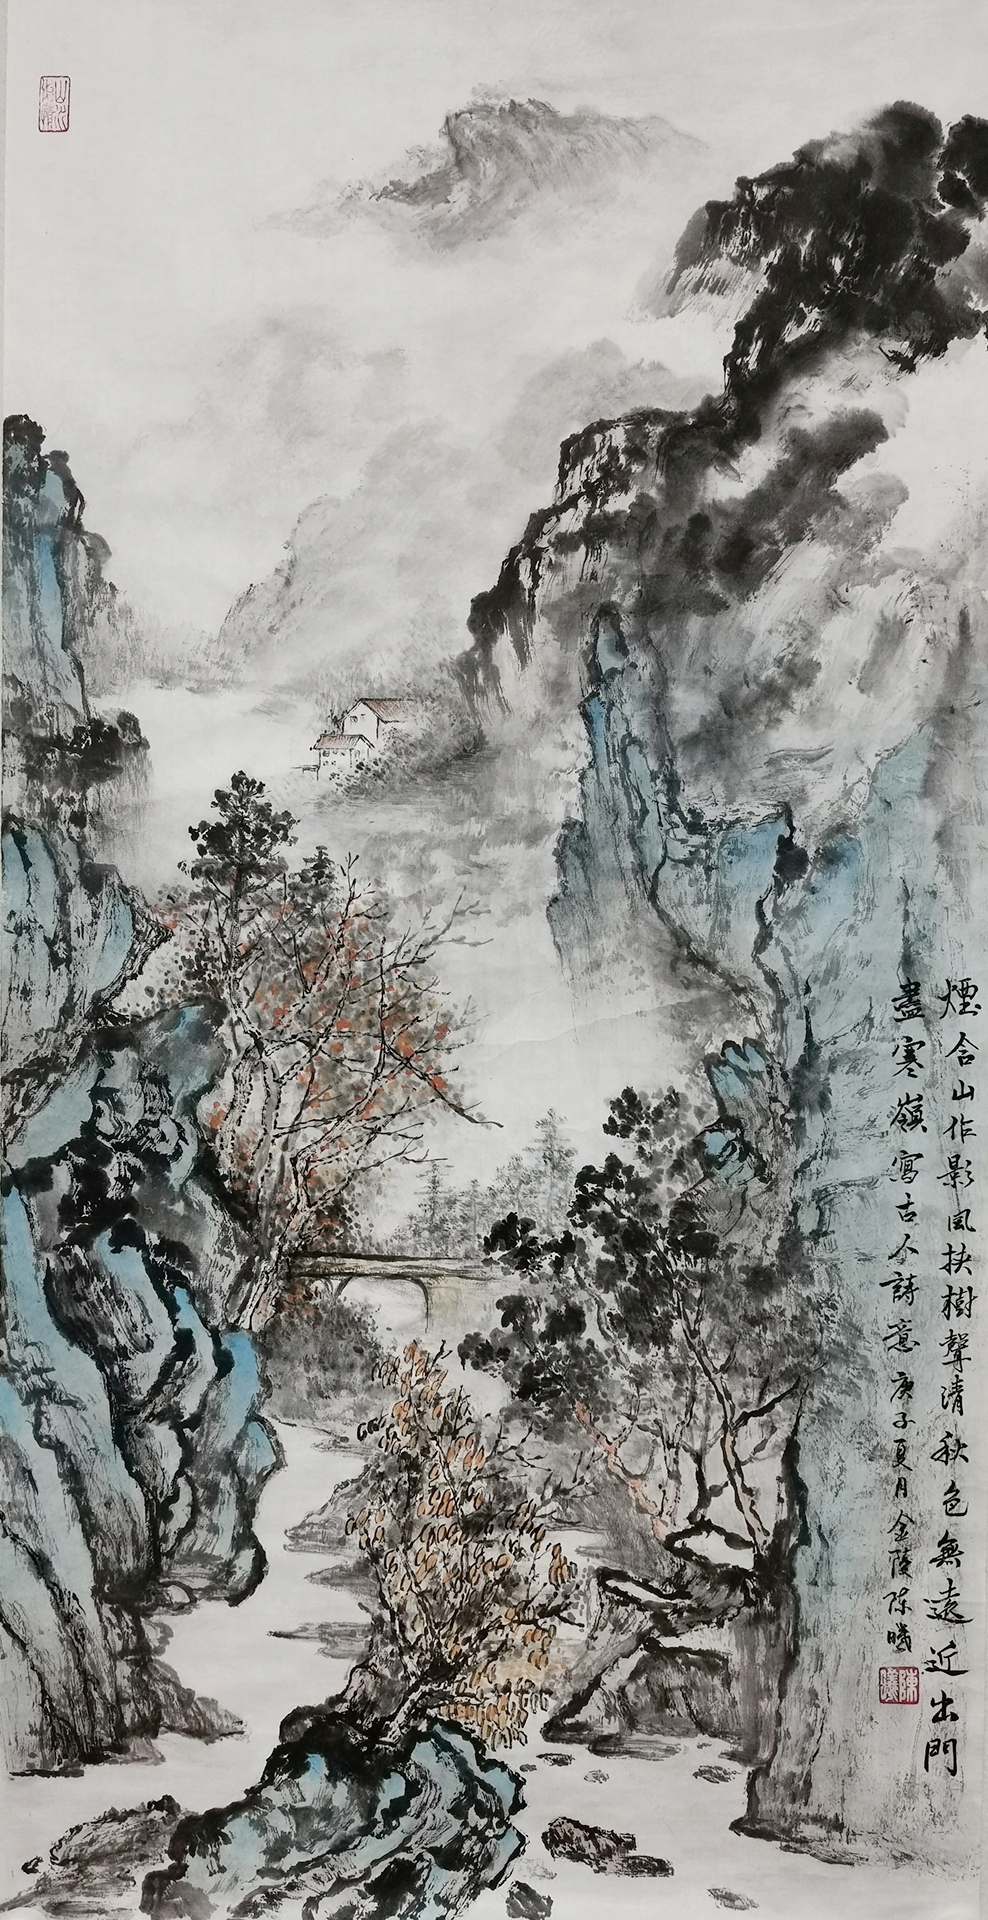 煙含山作影風挾樹聲清秋色無遠近出門
盡寒嶺寫古人詩意庚子夏月金陵陳曦
陳曦